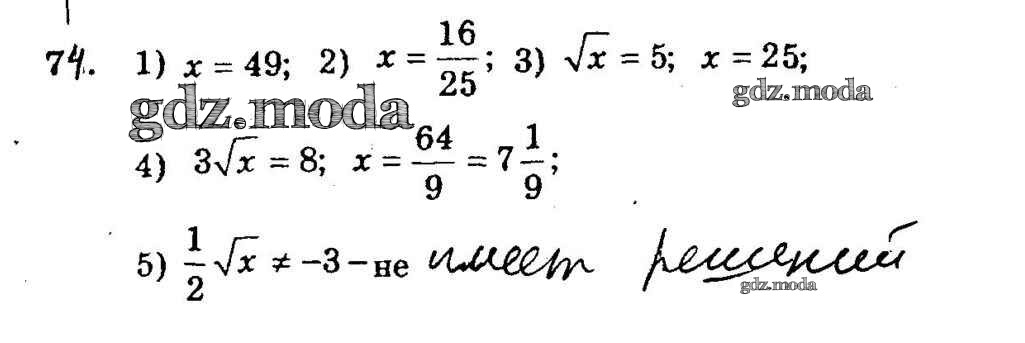 74. 1) x = 49; 2) x = 16/25; 3) √x = 5; x = 25;
gdz.moda
gdz.moda
4) 3√x = 8; x = 64/9 = 7 1/9;
5) 1/2 √x ≠ −3 – не имеет решений
gdz.moda